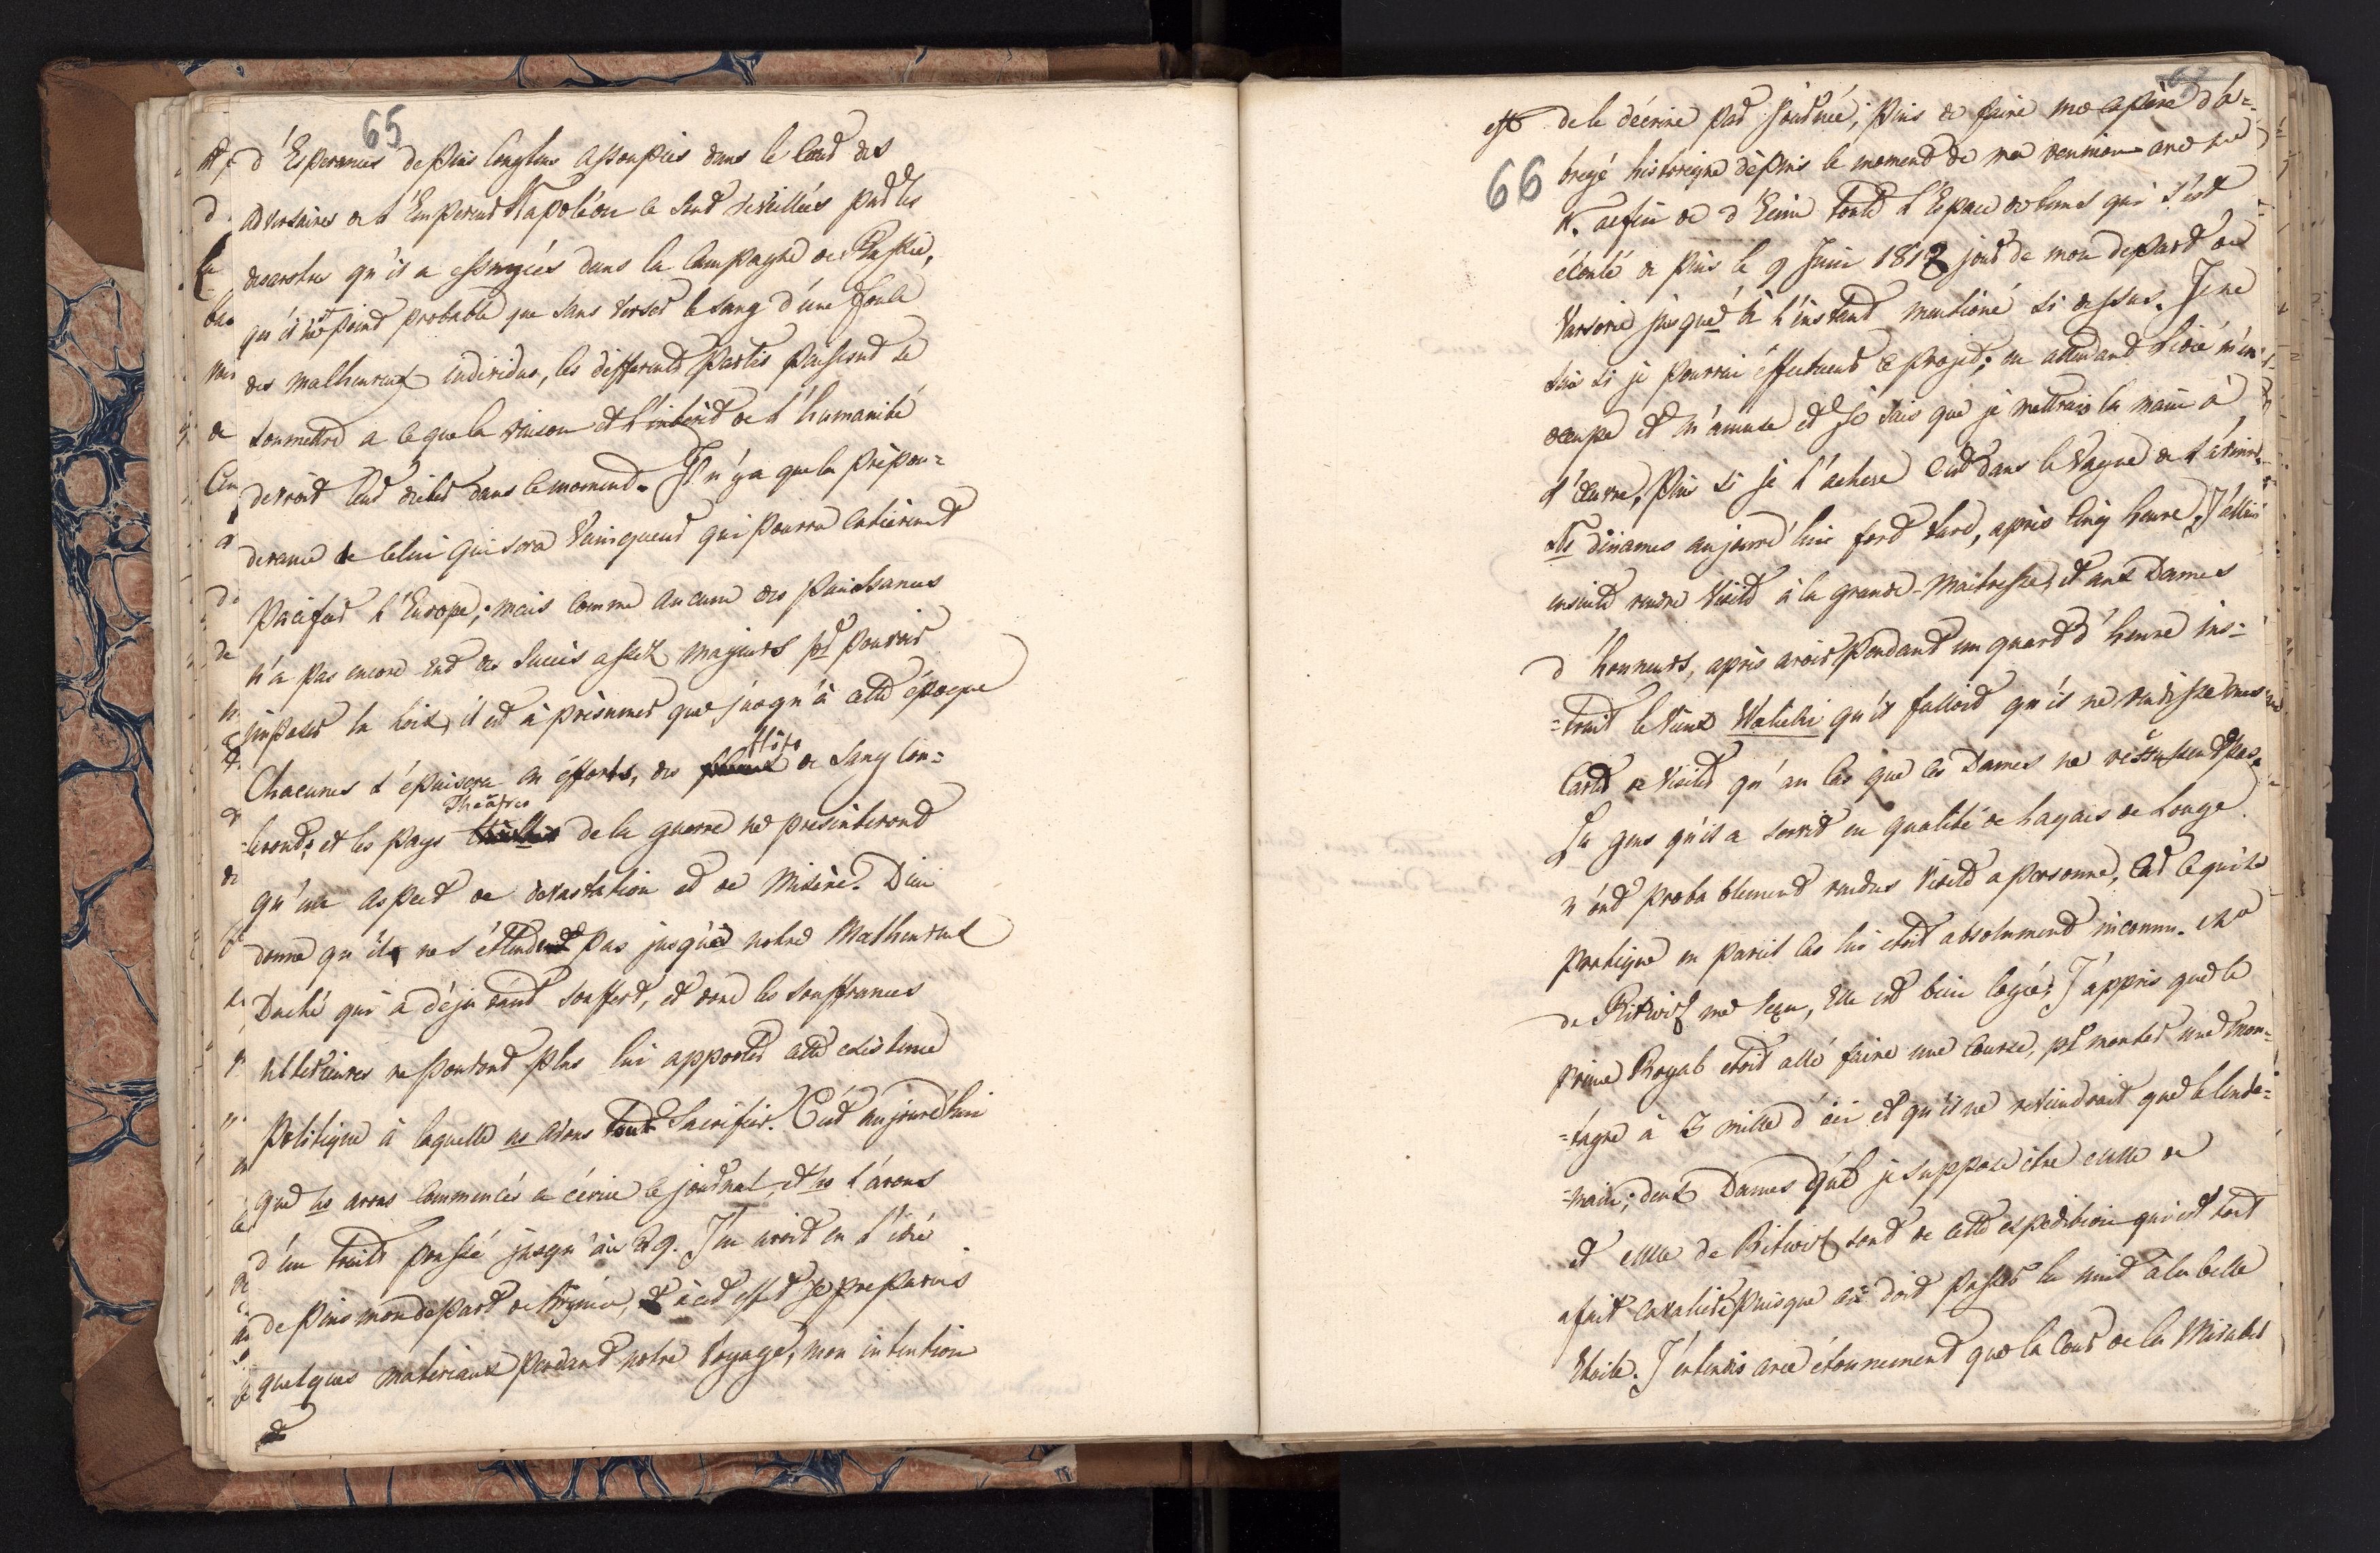 65
d'Esperances depuis longtems assoupies dans le Coeur des
adversaires de l'Empereur Napoléon se sont réveillées par les
desastres qu'il a essuyées dans la Campagne de Russie,
qu'il n'est point probable que sans verser le sang d'une foule
des malheureux individus, les differents partis puissent se
soumettre a ce que la raison et l'intérêt de l'humanité
devroit leur dicter dans ce moment. Il n'y a que la prépon=
derance de celui qui sera Vainqueur qui pourra entièrement
pacifier l'Europe; mais comme aucune des puissances
n'a pas encore eut des succès assez majeurs pr pouvoir
imposer la loix, il est à présumer que jusqu'à cette époque
Chacunes s'épuisera en éfforts, des flots de sang cou=
leront; et les pays Théâtres de la guerre ne présenteront
qu'un aspect de dévastation et de Misère. Dieu
donne qu'ils ne s'étendent pas jusqu'à notre Malheureux
Duché qui a déja tant souffert, et dont les souffrances
ultérieures ne pouront plus lui apporter cette existence
Politique à laquelle ns avons tout Sacrifier. C'est aujourd'hui
que ns avons commencés a écrire ce journal, et ns l'avons
d'un trait poussé jusqu'au 29. J'en avoit eu l'idée
depuis mon départ de et à cet effet je préparois
quelques materiaux pendant notre voyage, mon intention
66
est de le décrire par journée; puis de faire une espèce d'a=
bregé historique depuis le moment de ma reunion avec le
K. aefin de d'Ecrire toute l'Espace de tems qui s'est
écoulé depuis le 9 Juin 1812 jour de mon depart de
Varsovie jusque à l'instant mentioné si dessus. Je ne
sais si je pourrai éffectuer ce projet; en attendant l'idée m'en
occupe et m'amuse et je sais que je mettrais la main à
l'oeuvre, puis si je l'acheve c'est dans le Vague de l'avenir.
Ns dinames aujourd'hui fort tard, après cinq heure. J'allai
ensuite rendre Visite à la grande-Maitresse, et aux Dames
d'honneurs, après avoir pendant un quart d'heure ins=
=truit le vieux Walicki qu'il falloit qu'il ne rendisse mes
Cartes de Visites qu'au cas que les Dames ne reçussent pas.
Les gens qu'il a servit en qualité de Laqais de Louage
n'ont probablement rendus visite a personne, car ce qu'ils
pratique en pareil cas lui étoit absolument inconnu. Me
de Ritwitz me reçu, Elle est bien logée; J'appris que le
Prince Royal etoit allé faire une Course, pr monter une mon=
=tagne à 3 mille d'ici et qu'il ne reviendroit que le lende=
=main; deux Dames que je suppose être celle de
et celle de Ritwitz sont de cette expedition qui est tout
afait cavaliere puisque on doit passer la nuit à la belle
Etoile. J'entendis avec étonnement que la Cour de la